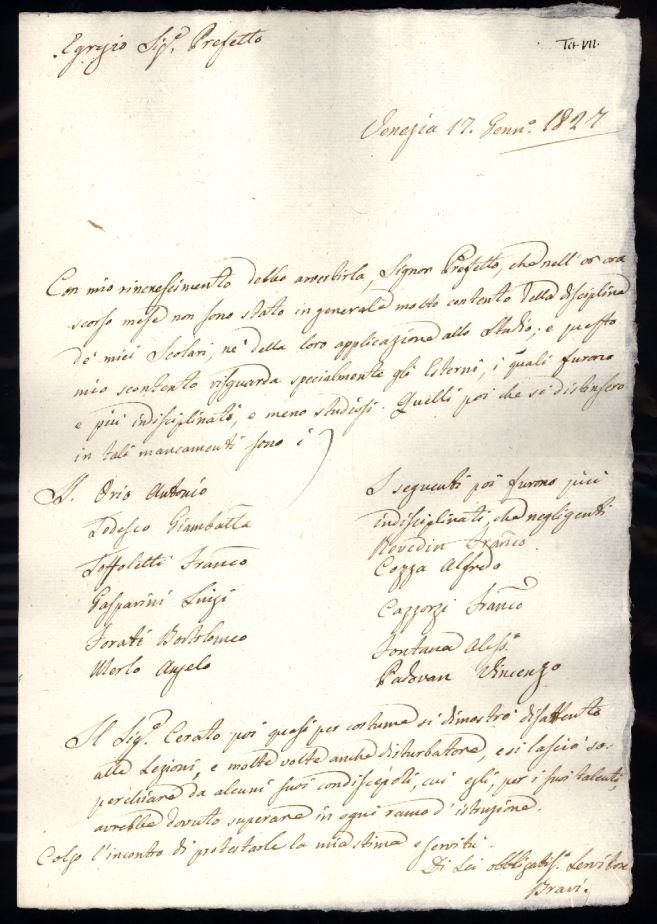 Egregio Sig.r Prefetto
Tit. VII.
Venezia 17. Genn.o 1827
Con mio rincrescimento debbo avvertirla, Signor Prefetto, che nell' or ora
scorso mese non sono stato in generale molto contento della disciplina
de' miei Scolari, nè della loro applicazione allo Studio; e questo
mio scontento risguarda specialmente gli Esterni, i quali furono
e più indisciplinati, e meno studiosi. Quelli poi che si distinsero
in tali mancamenti sono i
Orio Antonio
Todesco Giambatta
Toffoletti Franco
Gasparini Luigi
Forati Bortolomeo
Merlo Angelo
I seguenti poi furono più
indisciplinati, che negligenti
Revedin Franco.
Cozza Alfredo
Cazzorzi Franco
Fontana Aless.o
Padovan Vincenzo
Il Sig.r Cerato poi quasi per costume si dimostrò disattento
alle Lezioni, e molte volte anche disturbatore, e si lasciò so-
perchiare da alcuni suoi condiscepoli, cui egli, per i suoi talenti,
avrebbe dovuto superare in ogni ramo d'istruzione.
Colgo l'incontro di protestarle la mia stima e servitù.
Di Lei obbligatis.o Servitore
Bravi.